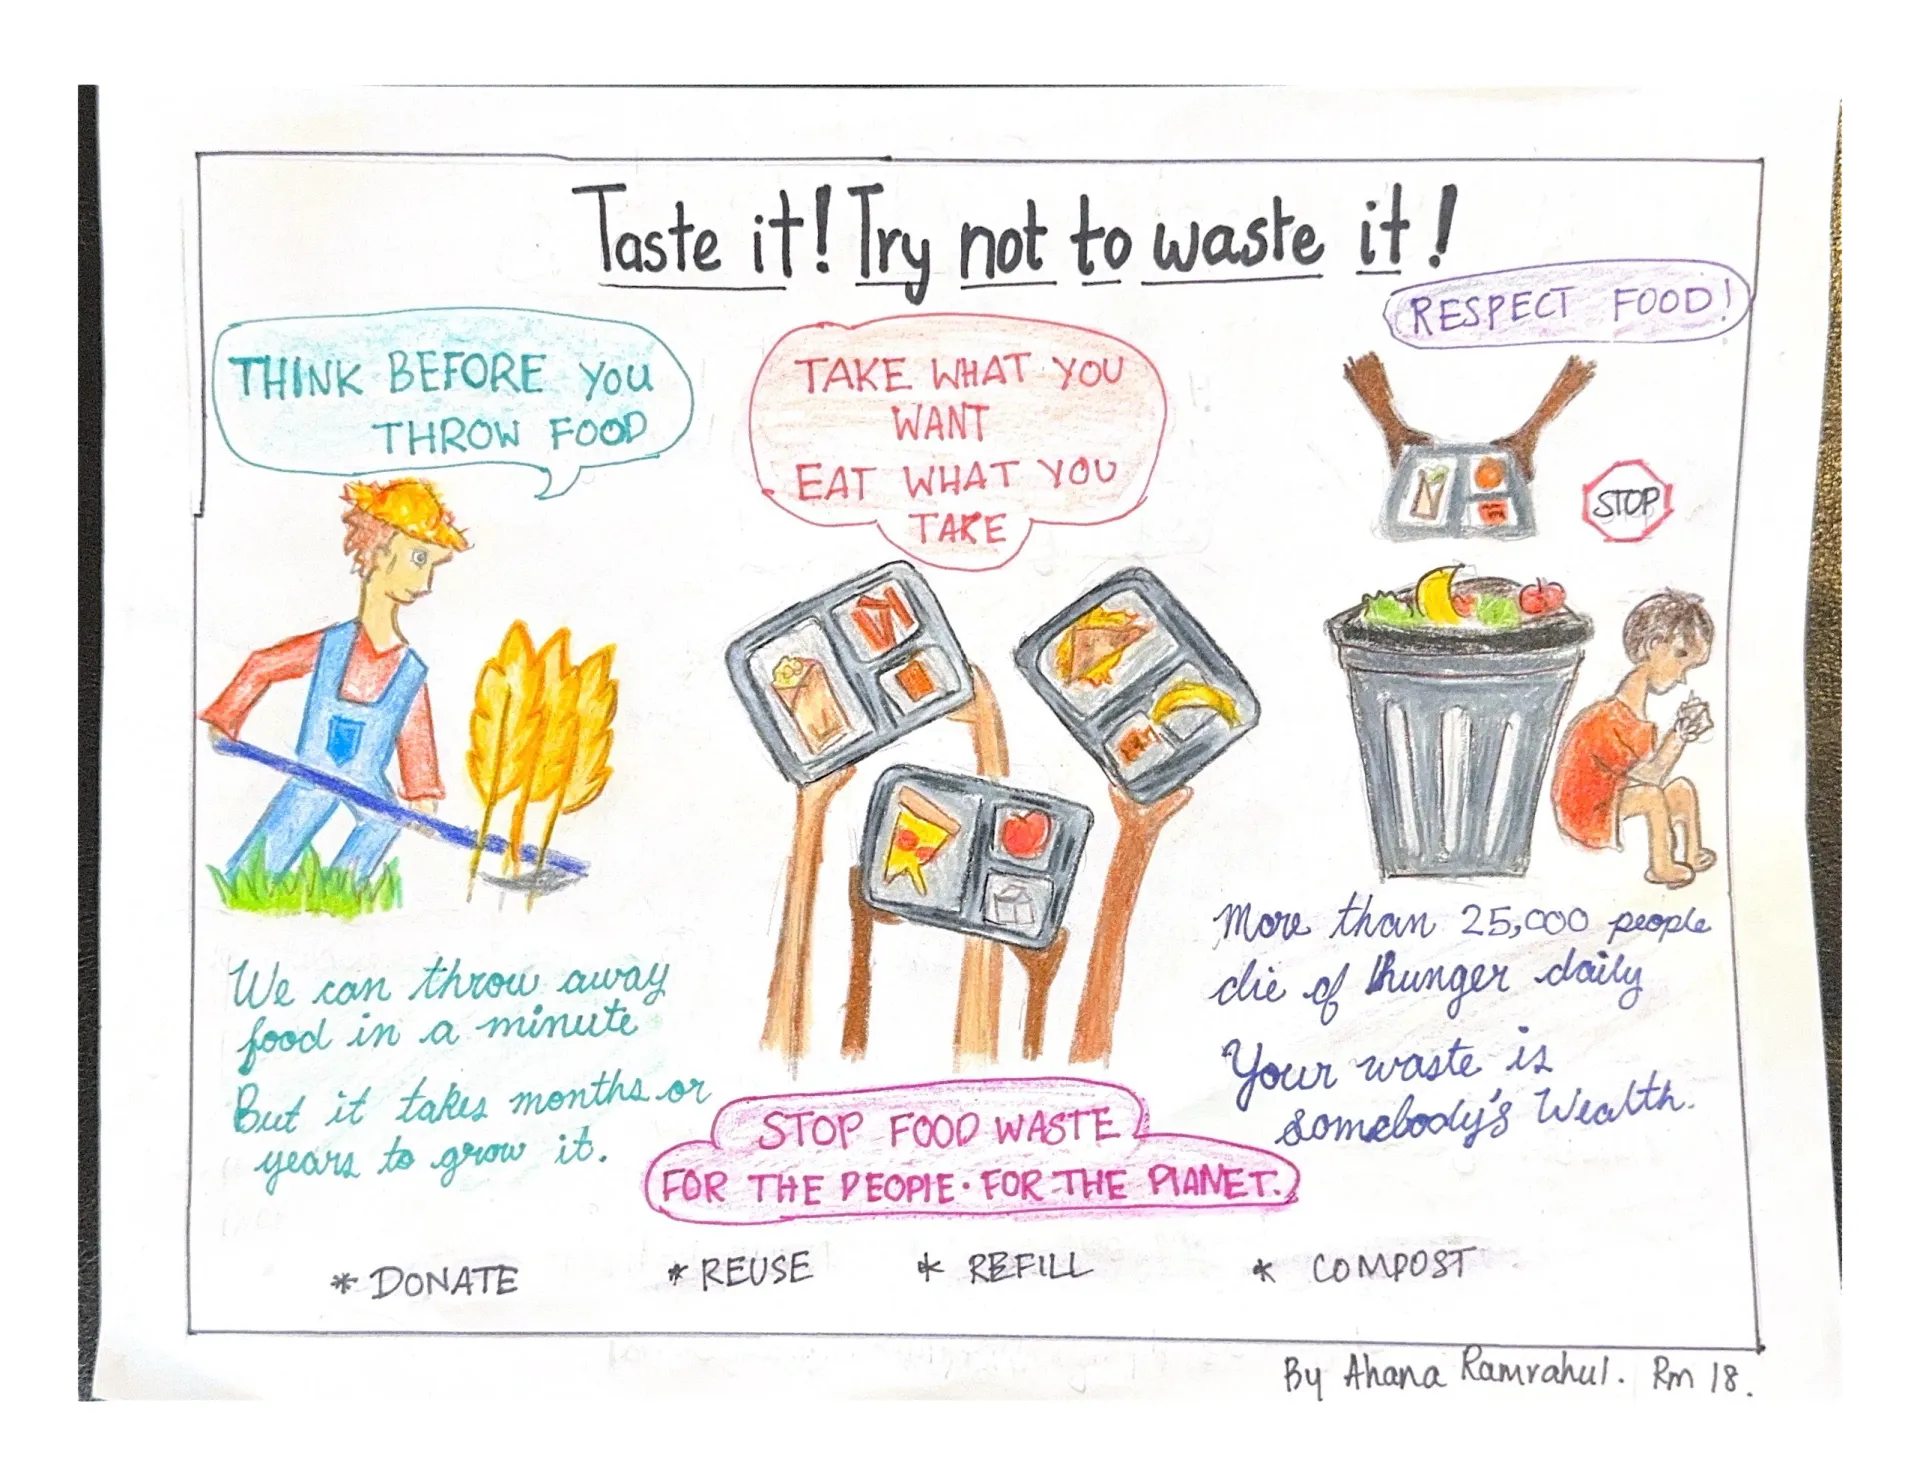 Taste it! Try not to waste it!
THINK BEFORE YOU
THROW FOOD
TAKE WHAT YOU
WANT
EAT WHAT YOU
TAKE
RESPECT FOOD!
STOP
We can throw away
food in a minute
But it takes months or
years to grow it.
More than 25,000 people
die of hunger daily
Your waste is
somebody's Wealth.
STOP FOOD WASTE
FOR THE PEOPLE · FOR THE PLANET.
* DONATE * REUSE * REFILL * COMPOST
By Ahana Ramrahul. Rm 18.